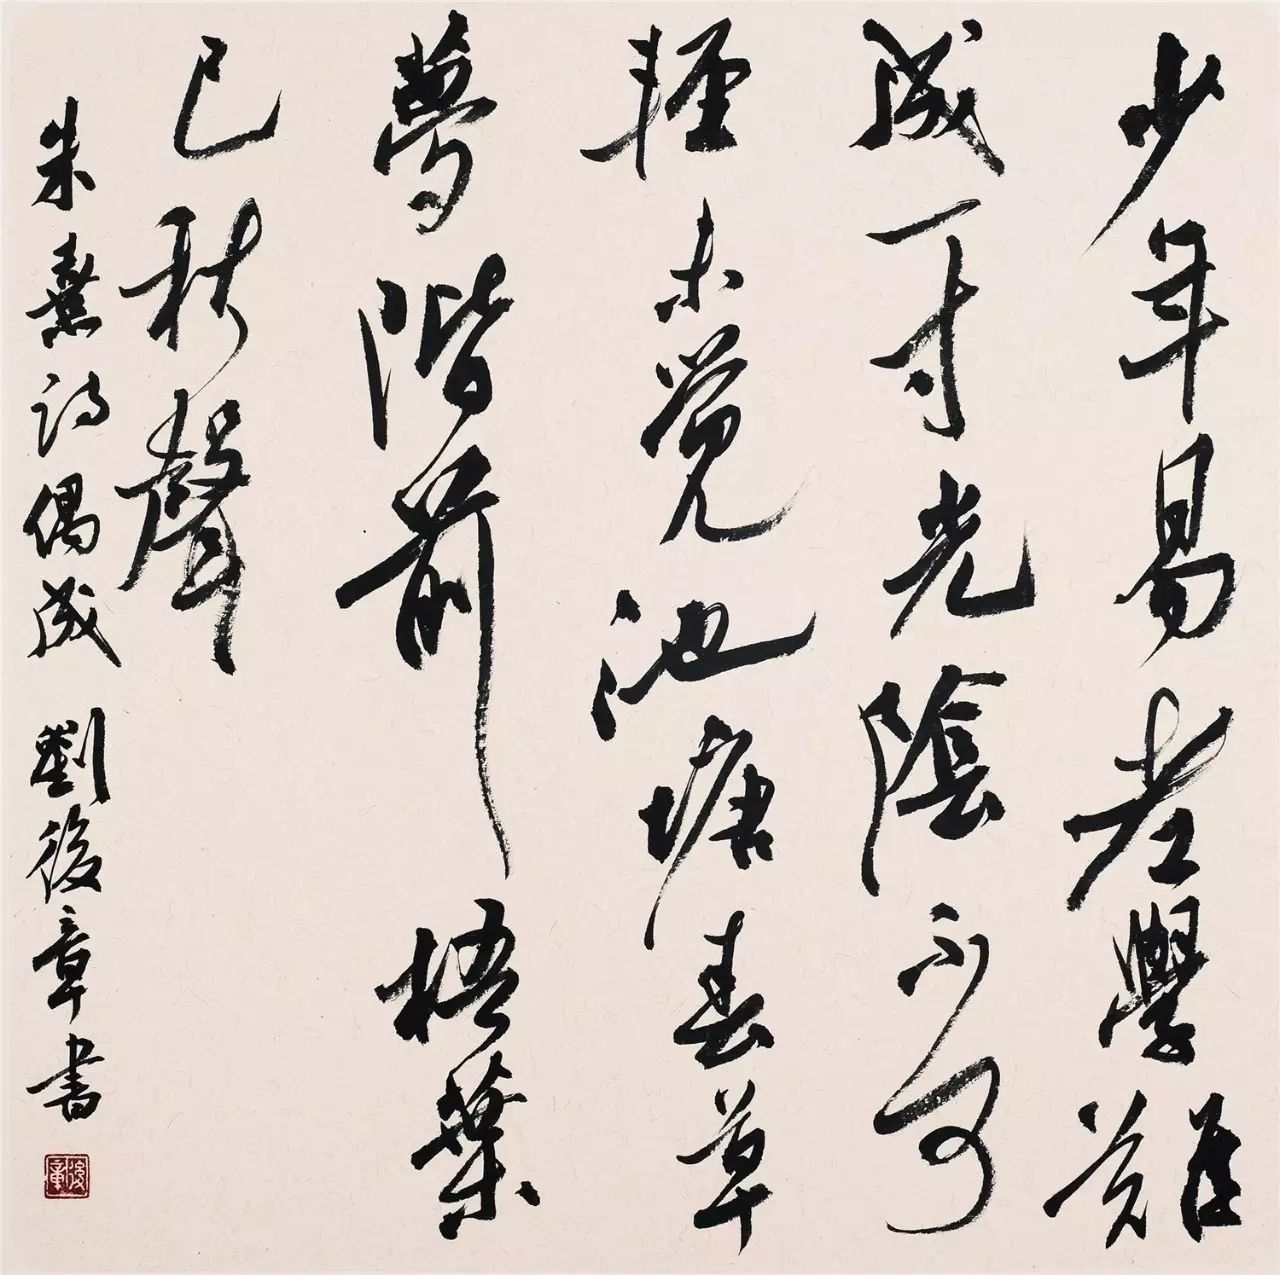 少年易老學難
成一寸光陰不可
輕未覺池塘春草
夢階前梧葉
已秋聲
朱熹詩偶成 劉後章書
後章